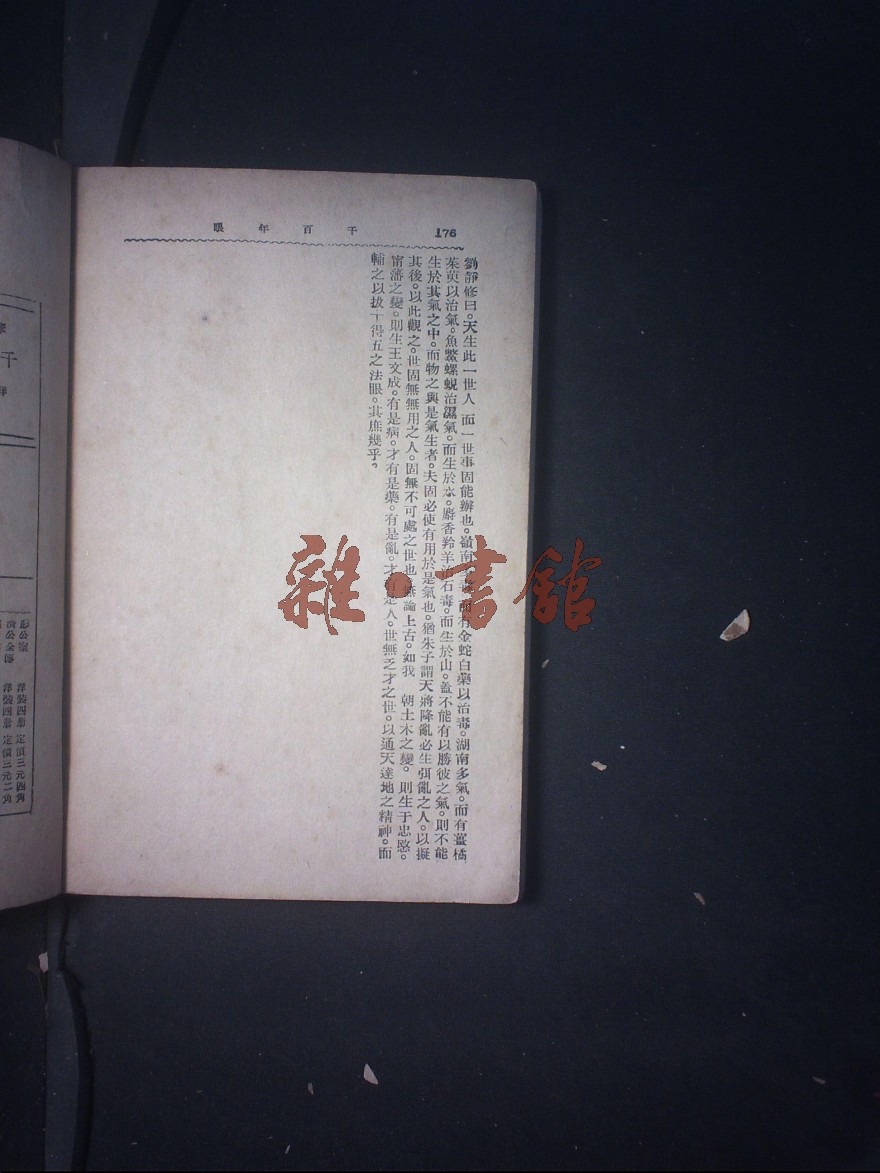 千百年眼
176
劉靜修曰。天生此一世人 而一世事固能辦也。嶺南 有金蛇白藥以治毒。湖南多氣。而有薑橘
茱萸以治氣。魚鱉螺蜆治濕氣。而生於水。麝香羚羊治石毒。而生於山。蓋不能有以勝彼之氣。則不能
生於其氣之中。而物之與是氣生者。夫固必使有用於是氣也。猶朱子謂天將降亂必生弭亂之人。以擬
其後。以此觀之。世固無無用之人。固無不可處之世也 無論上古。如我 朝土木之變。則生于忠愍。
甯藩之變。則生王文成。有是病。才有是藥。有是亂。才有是人。世無乏才之世。以通天達地之精神。而
輔之以拔十得五之法眼。其庶幾乎。
雜·書館
千
洋裝四册 定價三元四角
洋裝四册 定價三元二角